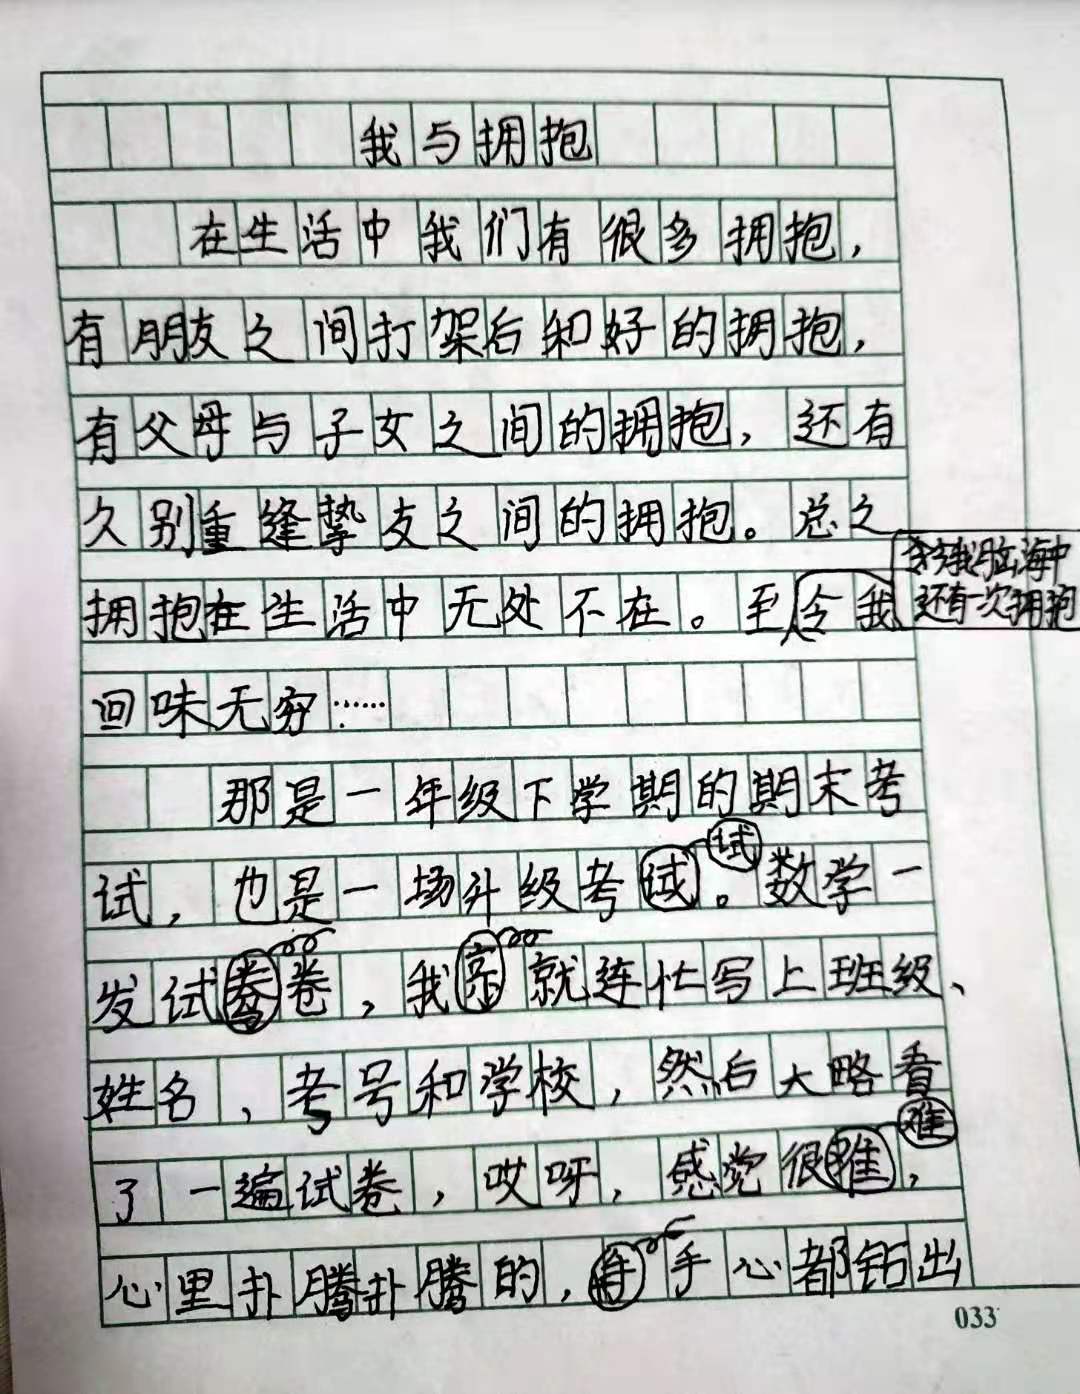 我与拥抱
在生活中我们有很多拥抱，
有朋友之间打架后和好的拥抱，
有父母与子女之间的拥抱，还有
久别重逢挚友之间的拥抱。总之
我脑海中
还有一次拥抱
拥抱在生活中无处不在。至今我
回味无穷……
那是一年级下学期的期末考
试
试，也是一场升级考试。数学一
发试卷，我就连忙写上班级、
姓名，考号和学校，然后大略看
难
了一遍试卷，哎呀，感觉很难，
心里扑腾扑腾的，手心都钻出
033